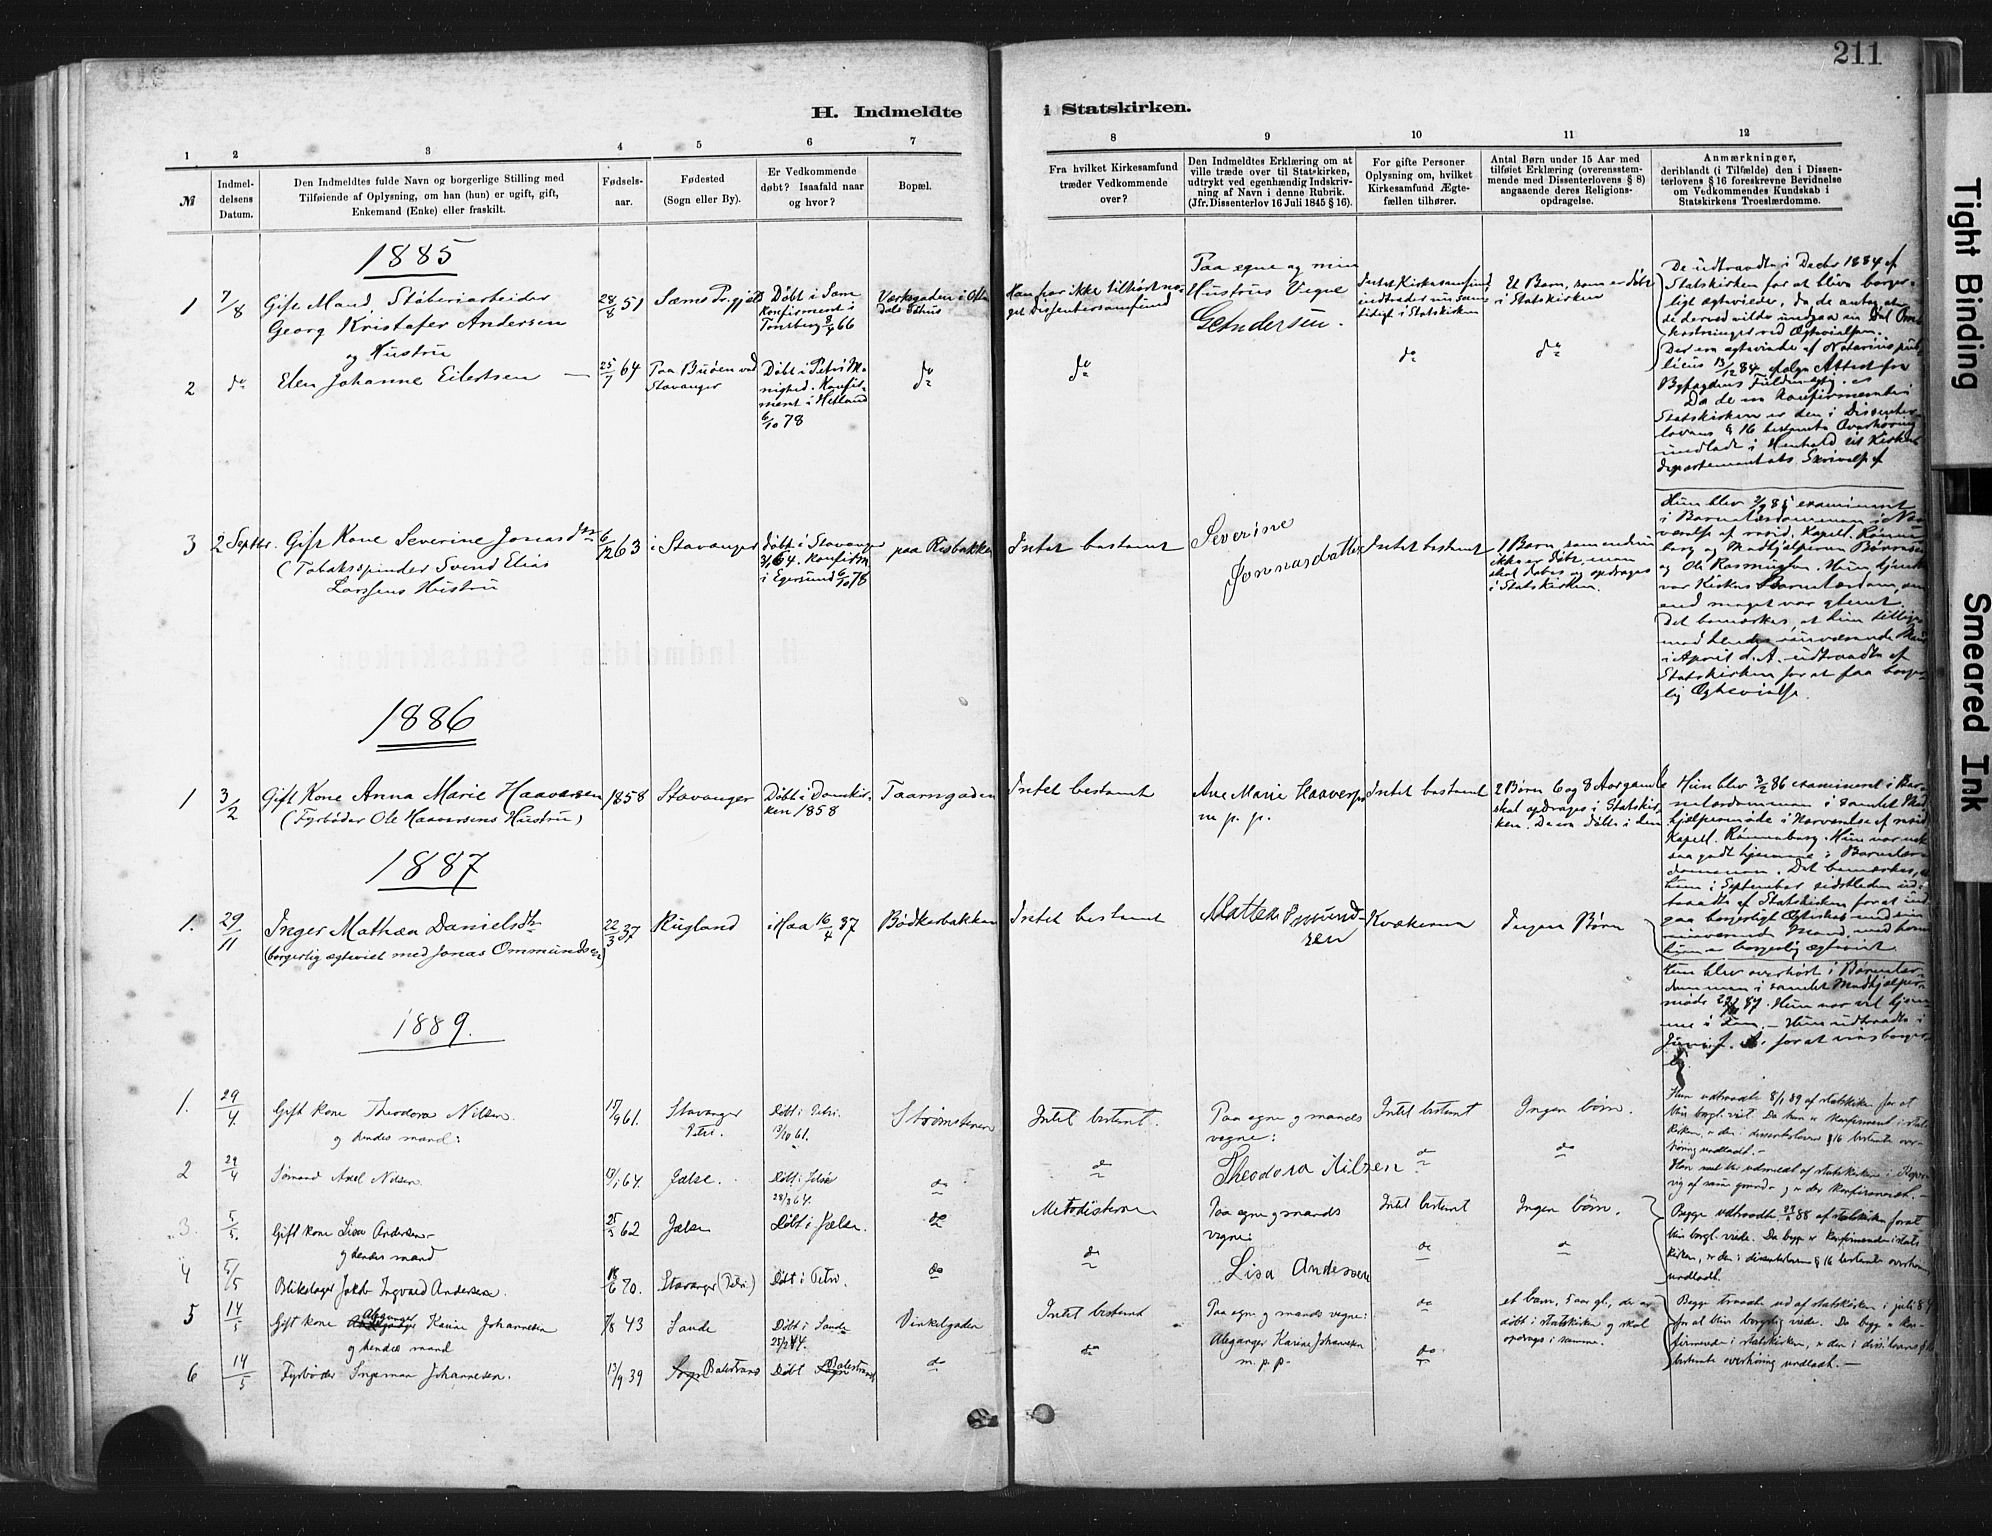 211
H. Indmeldte i Statskirken.
1 2 3 4 5 6 7 8 9 10 11 12
№
Indmel-
delsens
Datum.
Den Indmeldtes fulde Navn og borgerlige Stilling med
Tilføiende af Oplysning, om han (hun) er ugift, gift,
Enkemand (Enke) eller fraskilt.
Fødsels-
aar.
Fødested
(Sogn eller By).
Er Vedkommende
døbt? Isaafald naar
og hvor?
Bopæl.
Fra hvilket Kirkesamfund
træder Vedkommende
over?
Den Indmeldtes Erklæring om at
ville træde over til Statskirken,
udtrykt ved egenhændig Indskriv-
ning af Navn i denne Rubrik.
(Jfr. Dissenterlov 16 Juli 1845 § 16).
For gifte Personer
Oplysning om, hvilket
Kirkesamfund Ægte-
fællen tilhører.
Antal Børn under 15 Aar med
tilføiet Erklæring (overensstem-
mende med Dissenterlovens § 8)
angaaende deres Religions-
opdragelse.
Anmærkninger,
deriblandt (i Tilfælde) den i Dissen-
terlovens § 16 foreskrevne Bevidnelse
om Vedkommendes Kundskab i
Statskirkens Troeslærdomme.
1885
1
7/8
Gift Mand, Støberiarbeider
Georg Kristofer Andersen
og Hustru
28/8 51
Sæms Prgjæld
Døbt i Sem
Konfirmeret i
Tønsberg 66
Værksgaden i
Han har ikke tilhørt no-
get Dissentersamfund
Paa egne og min
Hustrus Vegne
G Andersen.
Intet Kirkesamfund,
indtræder nu sam-
tidigt i Statskirken
Et Barn, som er døbt
i Statskirken
De udtraadte i Decbr 1884 af
Statskirken for at blive borger-
ligt ægteviede, da de antog at
de derved vilde undgaa en Del Om-
kostninger ved Ægtevielsen.
2
do
Elen Johanne Eilertsen
25/7 64
Paa Buøen ved
Stavanger
Døbt i Petri Me-
nighed. Konfir-
meret i Hetland
6/10 78
do
do
do
do
Der er ægteviede af Notarius pub-
licus 13/12 84 ifølge Attest fra
Byfogdens Fuldmægtig.
Da de er konfirmerede i
Statskirken er den i Dissenter-
lovens § 16 bestemte Overhøring
undladt i Henhold til Kirke-
departementets Skrivelse af
3
2 Septbr.
Gift Kone Severine Jonasdtr
(Tobaksspinder Svend Elias
Larssens Hustru
6/12 63
i Stavanger
Døbt i Stavanger
64. Konfirm.
i Egersund 78
paa Risbakken
Intet bestemt
Severine
Jonnasdatter
Intet bestemt
1 Barn, som endnu
ikke er døbt, men
skal døbes og opdrages
i Statskirken.
Hun blev 2/9 85 examineret
i Børnelærdommen i Nær-
værelse af resid. Kapell.
og Medhjælperne
og Ole Rasmussen. Hun kjendte
vor Kirkes Børnelærdom, om
end meget var glemt.
Det bemærkes, at hun tillige
med hendes nuværende Mand
i April d. A. udtraadte af
Statskirken for at faa borger-
lig Ægtevielse.
1886
1
3/2
Gift Kone Anna Marie Haaversen
(Fyrbøder Ole Haaversens Hustru)
1858
Stavanger
Døbt i Domkir-
ken 1858
Taarngaden
Intet bestemt
Ane Marie Haaversen
m. p. p.
Intet bestemt
2 Børn 6 og 8 Aar gamle
skal opdrages i Statskir-
ken. De er døbte i den
Hun blev 3/2 86 examineret i Bør-
nelærdommen i samlet Med-
hjælpermøde i Nærværelse af resid.
Kapell. Rønneberg. Hun var nok
saa godt hjemme i Børnelær-
dommen. Det bemærkes, at
hun i September sidstleden ud-
traadte af Statskirken for at ind-
gaa borgerligt Ægteskab med sin
nuværende Mand, med hvem
hun er borgerlig ægteviet
1887
1.
29/11
Inger Mathea Danielsdtr
(borgerlig ægteviet med Jonas Ommundsen)
22/3 37
Rugland
i Haa 16/4 37
Bødkerbakken
Intet bestemt
Kvækerne
Ingen Børn
Hun blev overhørt i Børnelær-
dommen i samlet Medhjælper-
møde 87. Hun var vel hjem-
me i den. – Hun udtraadte i
Juni f. A. for at vies borger-
lig
1889.
1.
29/4.
Gift kone Theodora Nilsen.
og hendes mand:
17/9 61.
Stavanger
Petri.
Døbt i Petri.
13/10 61.
Strømstenen
Intet bestemt.
Paa egne og mands
vegne:
Theodora Nilsen
Intet bestemt
Ingen børn.
Hun udtraadte 8/1 89 af statskirken for at
blive borgl. viet. Da hun er konfirmeret i stats-
kirken, er den i dissenterloven § 16 bestemte over-
høring undladt. –
2
29/4
Sømand Axel Nilsen.
64.
Jælse.
Døbt i Jelse
64.
do
do
do
do
3.
5/5.
Gift kone Lisa Andersen
og hendes mand
25/5 62
Jælsen
Døbt i Jælse.
do
Metodisterne
Paa egne og mands
vegne:
Lisa Andersen
Intet bestemt
Ingen børn.
Begge udtraadte 88 af statskirken for at
blive borgl. viede. Da begge er konfirmerede i stats-
kirken, er den i dissenterloven § 16 bestemte overhøring
undladt.
4
5/5
Blikslager Jakob Ingvald Andersen.
70.
Stavanger (Petri)
Døbt i Petri.
do
do
do
do
5
14/5
Gift kone Abeganger Karine Johannesen
og hendes mand
7/8 43
Sande
Døbt i Sande
44.
Vinkelgaden
Intet bestemt
Paa egne og mands vegne:
Abeganger Karine Johannesen
m. p. p.
do
et barn, 5 aar gl., der er
døbt i statskirken og skal
opdrages i samme.
Begge traadte ud af statskirken i juli 84
for at blive borgerlig viede. Da begge er kon-
firmerede i statskirken, er den i diss.lovens § 16
bestemte overhøring undladt. –
6
14/5
Fyrbøder Ingeman Johannesen.
13/9 39
Balestrand
Døbt Balestrand
do
do
do
Tight Binding
Smeared Ink